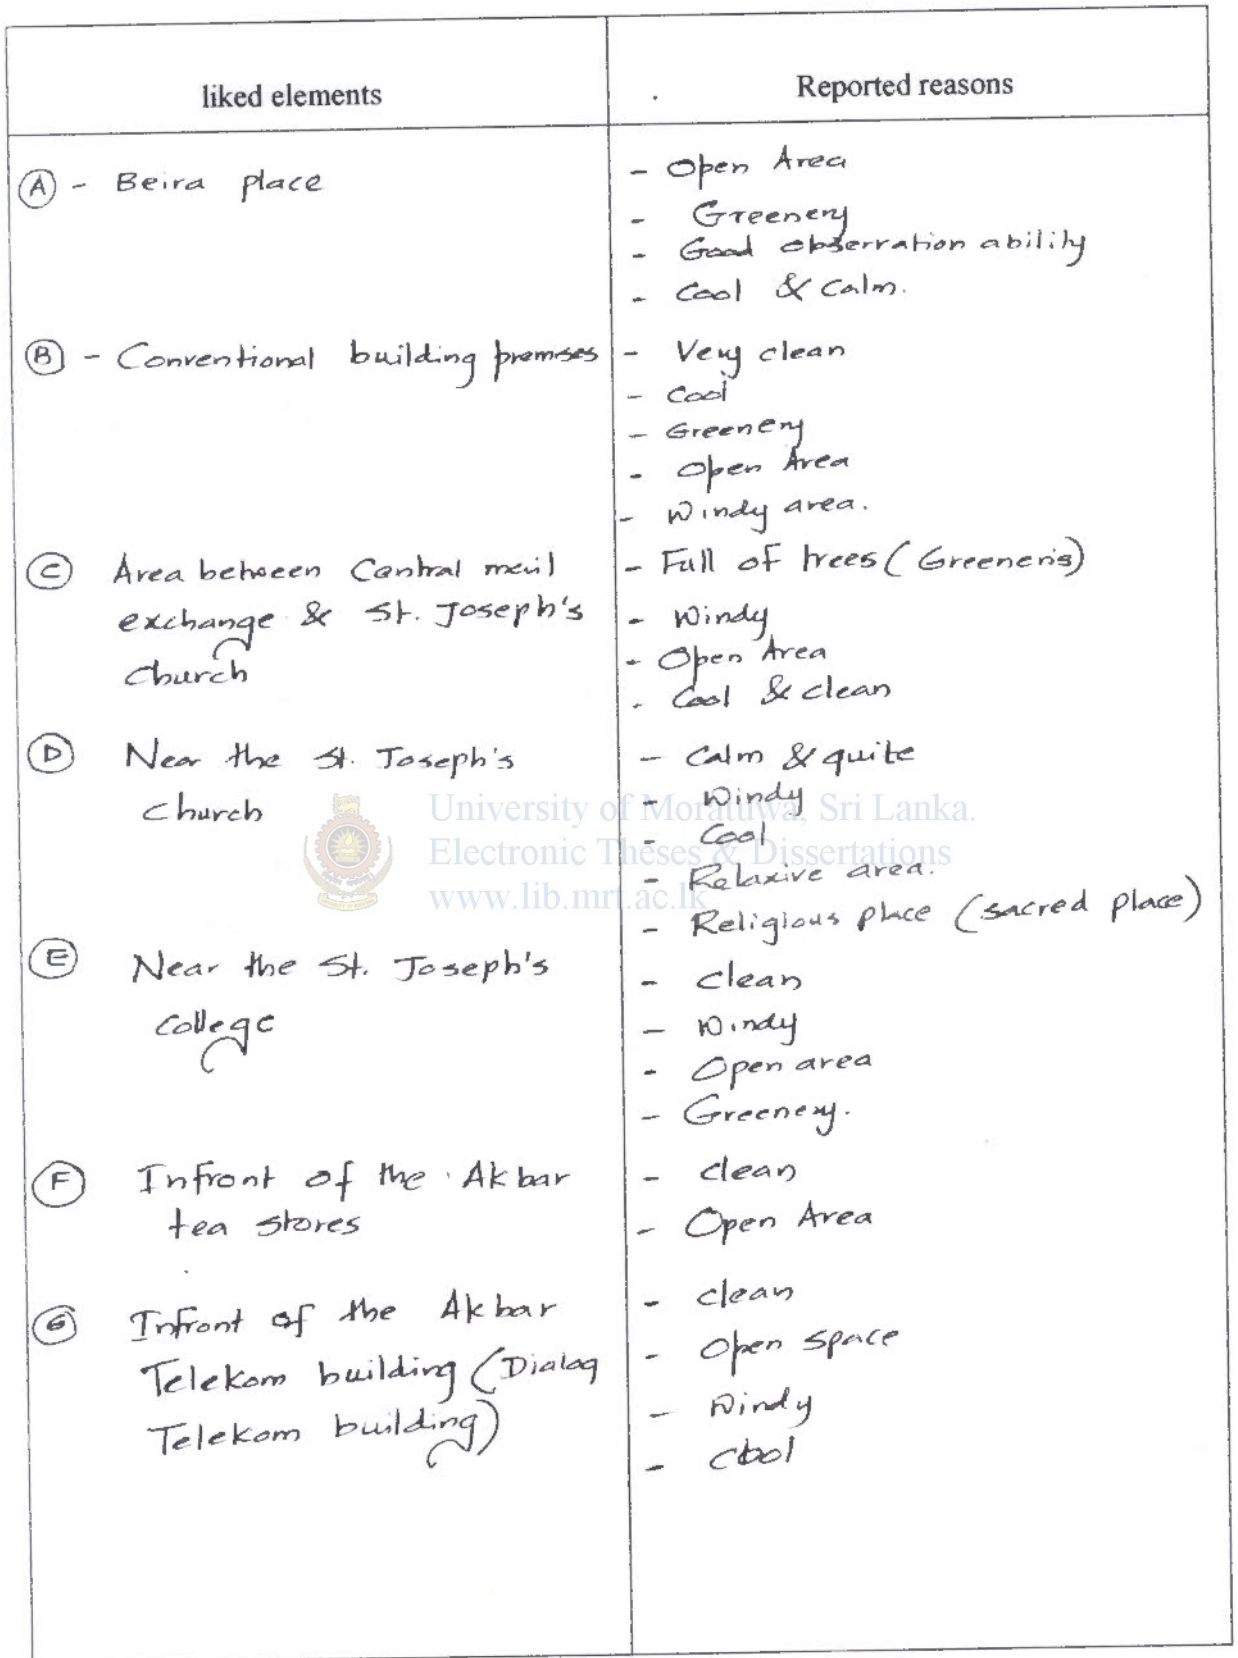 liked elements
Reported reasons
(A) - Beira place
- Open Area
- Greenery
- Good observation ability
- Cool & Calm.
(B) - Conventional building premises
- Very clean
- Cool
- Greenery
- Open Area
- Windy area.
(C) Area between Central mail
exchange & St. Joseph's
Church
- Full of trees (Greeneris)
- Windy
- Open Area
- Cool & clean
(D) Near the St. Joseph's
church
- Calm & quite
- Windy
- Cool
- Relaxive area.
- Religious place (sacred place)
(E) Near the St. Joseph's
College
- clean
- Windy
- Open area
- Greenery.
(F) Infront of the Akbar
tea stores
- clean
- Open Area
(G) Infront of the Akbar
Telekom building (Dialog
Telekom building)
- clean
- Open space
- Windy
- Cool
University of Moratuwa, Sri Lanka.
Electronic Theses & Dissertations
www.lib.mrt.ac.lk